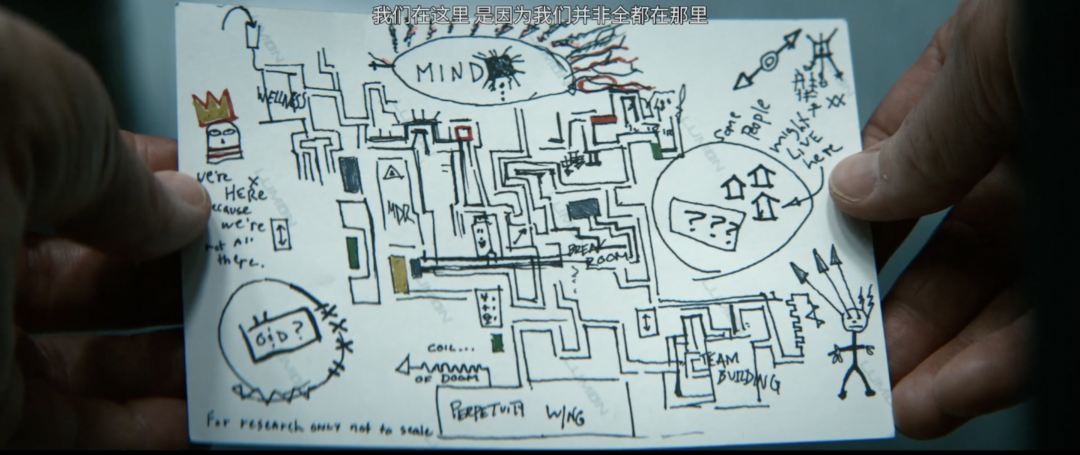 我们在这里 是因为我们并非全都在那里
MIND
WELLNESS
some
people
might
LIVE
here
we're
HERE
because
we're
not all
there.
MDR
???
BREAK
ROOM
?
O&D?
COIL...
OF DOOM
TEAM
BUILDING
PERPETUITY WING
For research only not to scale
LUMON